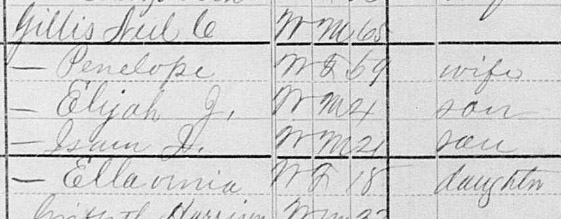 Gillis Neil C W M 65
— Penelope W F 59 wife
— Elijah J. W M 24 son
— Isam D. W M 21 son
— Ellavinia W F 18 daughter
Harrison W M